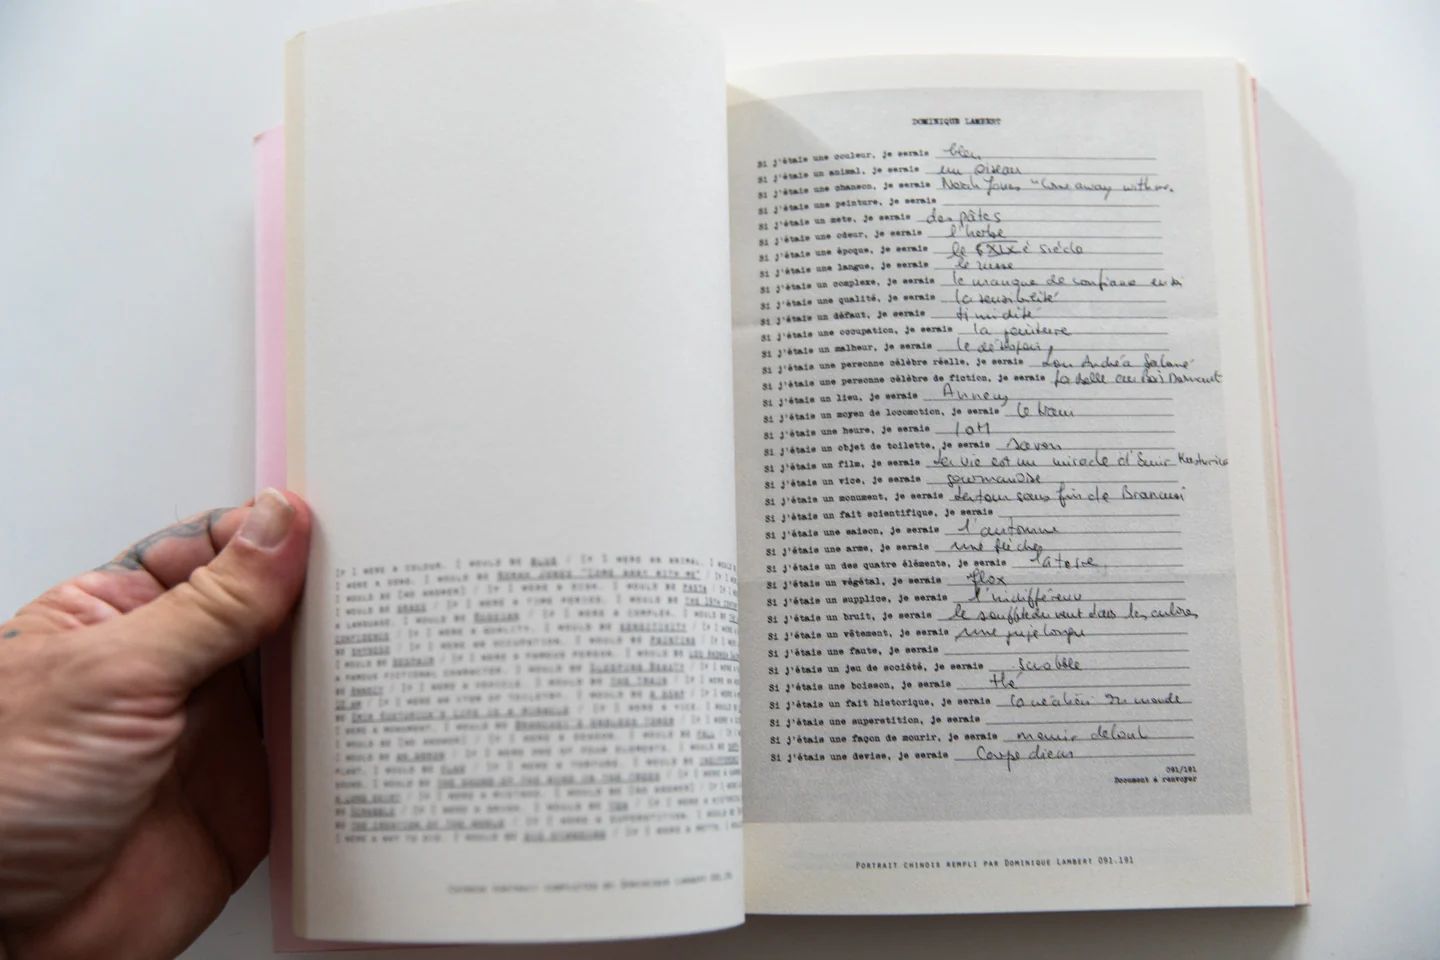 IF I WERE A COLOUR, I WOULD BE BLUE / IF I WERE AN ANIMAL, I WOULD
I WERE A SONG, I WOULD BE NORAH JONES "COME AWAY WITH ME" / IF I
WOULD BE [NO ANSWER] / IF I WERE A DISH, I WOULD BE PASTA / IF I
BE GRASS / IF I WERE A TIME PERIOD, I WOULD BE THE 19TH
A LANGUAGE, I WOULD BE RUSSIAN / IF I WERE A COMPLEX, I WOULD BE
CONFIDENCE / IF I WERE A QUALITY, I WOULD BE SENSITIVITY / IF I WERE A
BE SHYNESS / IF I WERE AN OCCUPATION, I WOULD BE PAINTING / IF I WERE
I WOULD BE DESPAIR / IF I WERE A FAMOUS PERSON, I WOULD BE
A FAMOUS FICTIONAL CHARACTER, I WOULD BE SLEEPING BEAUTY / IF I
BE ANNECY / IF I WERE A VEHICLE, I WOULD BE THE TRAIN / IF I WERE
10 AM / IF I WERE AN ITEM OF TOILETRY, I WOULD BE A SOAP / IF I
BE EMIR KUSTURICA'S LIFE IS A MIRACLE / IF I WERE A VICE, I WOULD BE
I WERE A MONUMENT, I WOULD BE BRANCUSI'S ENDLESS TOWER / IF I
I WOULD BE [NO ANSWER] / IF I WERE A SEASON, I WOULD BE FALL /
BE AN ARROW / IF I WERE ONE OF FOUR ELEMENTS, I WOULD BE
PLANT, I WOULD BE / IF I WERE A TORTURE, I WOULD BE
SOUND, I WOULD BE THE SOUND OF THE WIND IN THE TREES / IF I WERE A
A LONG SKIRT / IF I WERE A MISTAKE, I WOULD BE [NO ANSWER] / IF I WERE
BE SCRABBLE / IF I WERE A DRINK, I WOULD BE TEA / IF I WERE A
BE THE CREATION OF THE WORLD / IF I WERE A SUPERSTITION, I WOULD BE
I WERE A WAY TO DIE, I WOULD BE DIE STANDING / IF I WERE A MOTTO, I WOULD
CHINESE PORTRAIT COMPLETED BY DOMINIQUE LAMBERT
DOMINIQUE LAMBERT
Si j'étais une couleur, je serais bleu
Si j'étais un animal, je serais un oiseau
Si j'étais une chanson, je serais Norah Jones "Come away with me.
Si j'étais une peinture, je serais
Si j'étais un mets, je serais des pâtes
Si j'étais une odeur, je serais l'herbe
Si j'étais une époque, je serais le XIXe siècle
Si j'étais une langue, je serais le russe
Si j'étais un complexe, je serais le manque de confiance en soi
Si j'étais une qualité, je serais la sensibilité
Si j'étais un défaut, je serais timidité
Si j'étais une occupation, je serais la peinture
Si j'étais un malheur, je serais le désespoir
Si j'étais une personne célèbre réelle, je serais Lou Andréa Salomé
Si j'étais une personne célèbre de fiction, je serais la belle au bois Dormant
Si j'étais un lieu, je serais Annecy
Si j'étais un moyen de locomotion, je serais le train
Si j'étais une heure, je serais 10H
Si j'étais un objet de toilette, je serais savon
Si j'étais un film, je serais La vie est un miracle d'Emir Kusturica
Si j'étais un vice, je serais gourmandise
Si j'étais un monument, je serais La tour sans fin de Brancusi
Si j'étais un fait scientifique, je serais
Si j'étais une saison, je serais l'automne
Si j'étais une arme, je serais une flèche
Si j'étais un des quatre éléments, je serais la terre
Si j'étais un végétal, je serais flox
Si j'étais un supplice, je serais l'indifférence
Si j'étais un bruit, je serais le souffle du vent dans les arbres
Si j'étais un vêtement, je serais une jupe longue
Si j'étais une faute, je serais
Si j'étais un jeu de société, je serais scrabble
Si j'étais une boisson, je serais thé
Si j'étais un fait historique, je serais la création du monde
Si j'étais une superstition, je serais
Si j'étais une façon de mourir, je serais mourir debout
Si j'étais une devise, je serais Carpe diem
091/191
Document à renvoyer
PORTRAIT CHINOIS REMPLI PAR DOMINIQUE LAMBERT 091.191